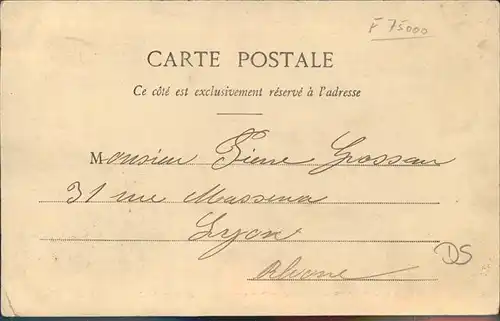 F 75000
CARTE POSTALE
Ce côté est exclusivement réservé à l'adresse
Monsieur Pierre Grosseau
31 rue Massena
Lyon
Rhone
DS